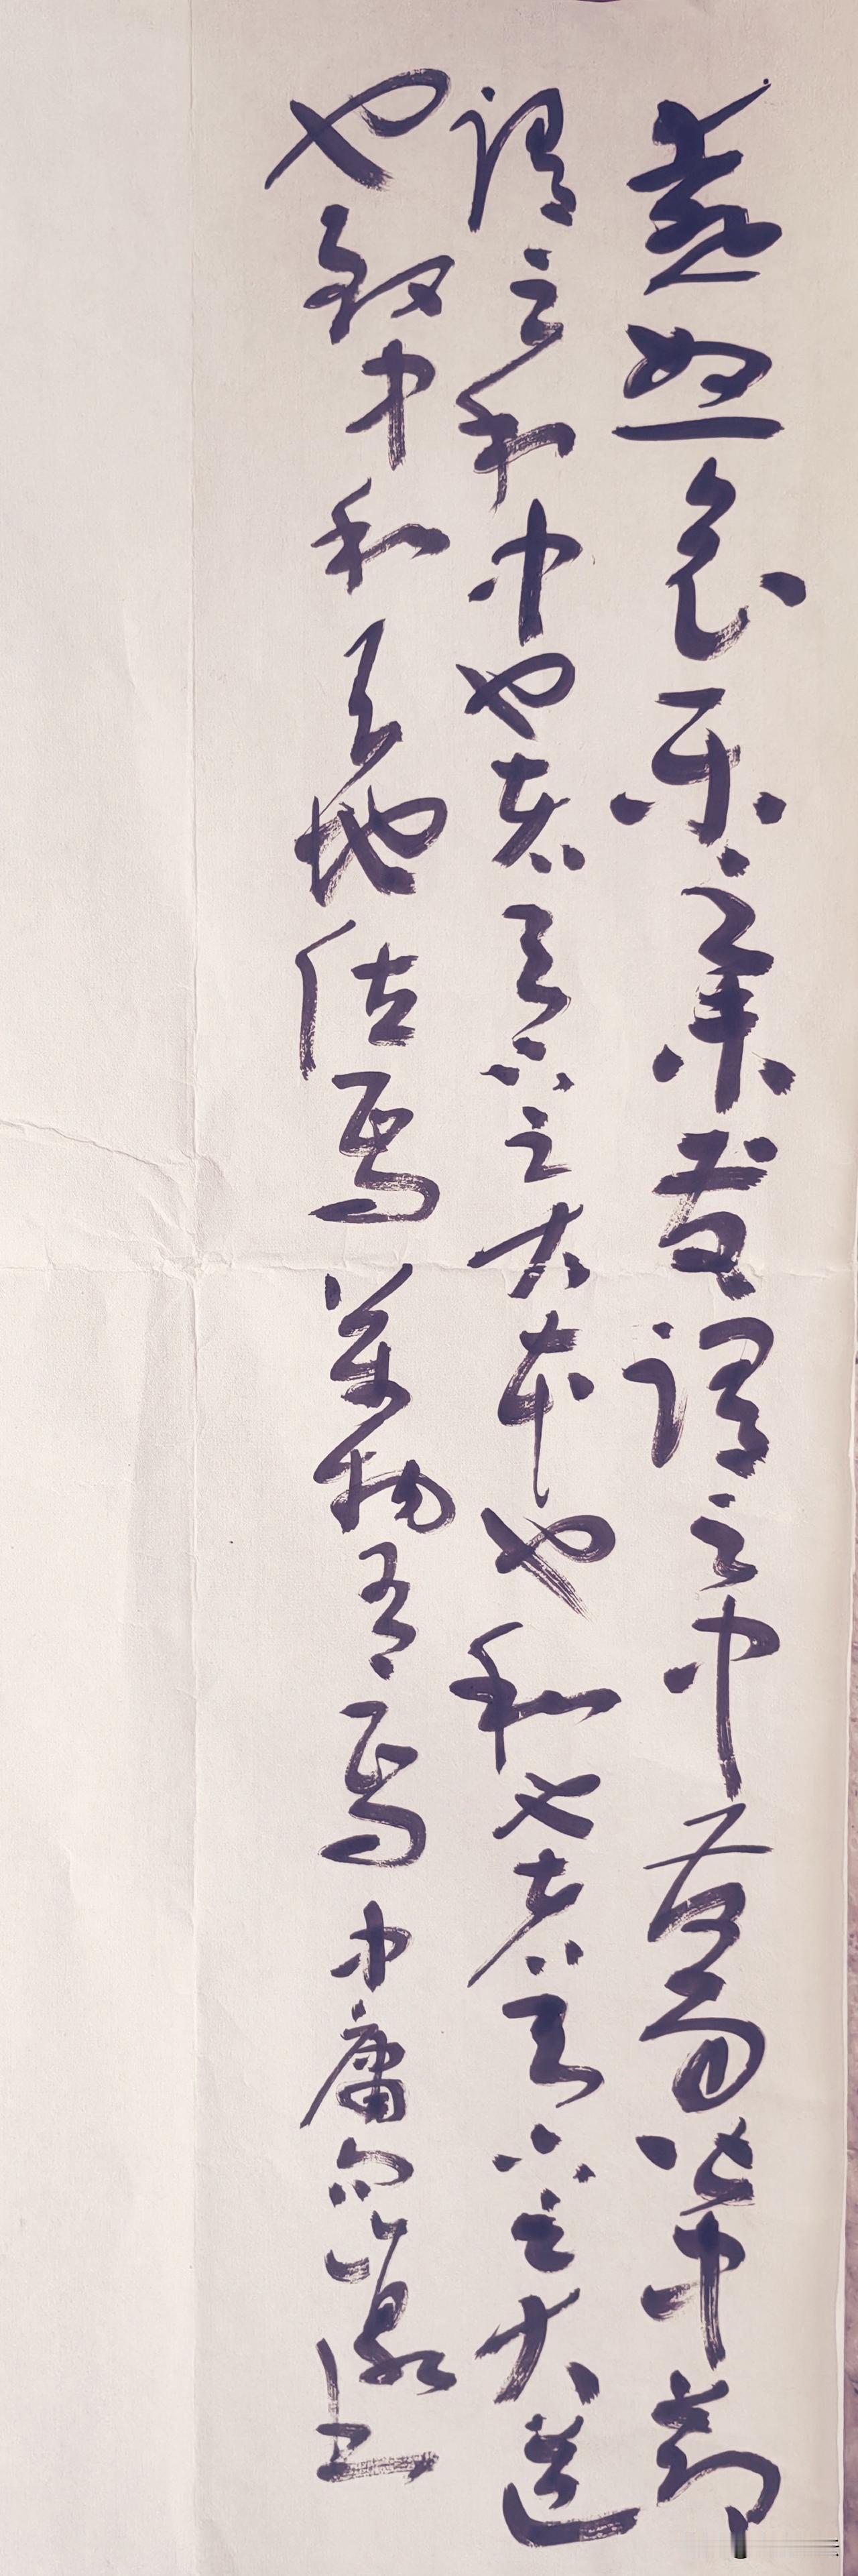 喜怒哀乐之未发谓之中发而皆中节
谓之和中也者天下之大本也和也者天下之大道
也致中和天地位焉万物育焉中庸句